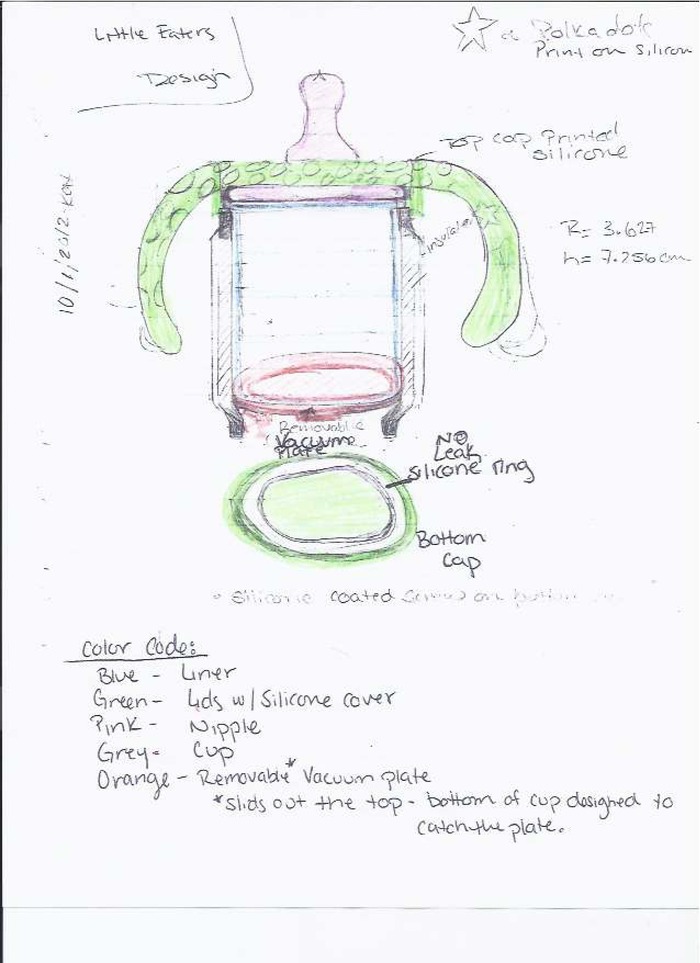 Little Eaters
Design
Polkadots
Print on silicon
Top cap printed
silicone
10/1/2012
Insulator
R= 3.627
h= 7.256cm
Removable
Vacuume
Plate
No
Leak
silicone ring
Bottom
cap
• Silicone coated screw on bottom
Color Code:
Blue - Liner
Green - Lids w/ Silicone cover
Pink - Nipple
Grey - Cup
Orange - Removable* Vacuum plate
*slids out the top - bottom of cup designed to
catch the plate.